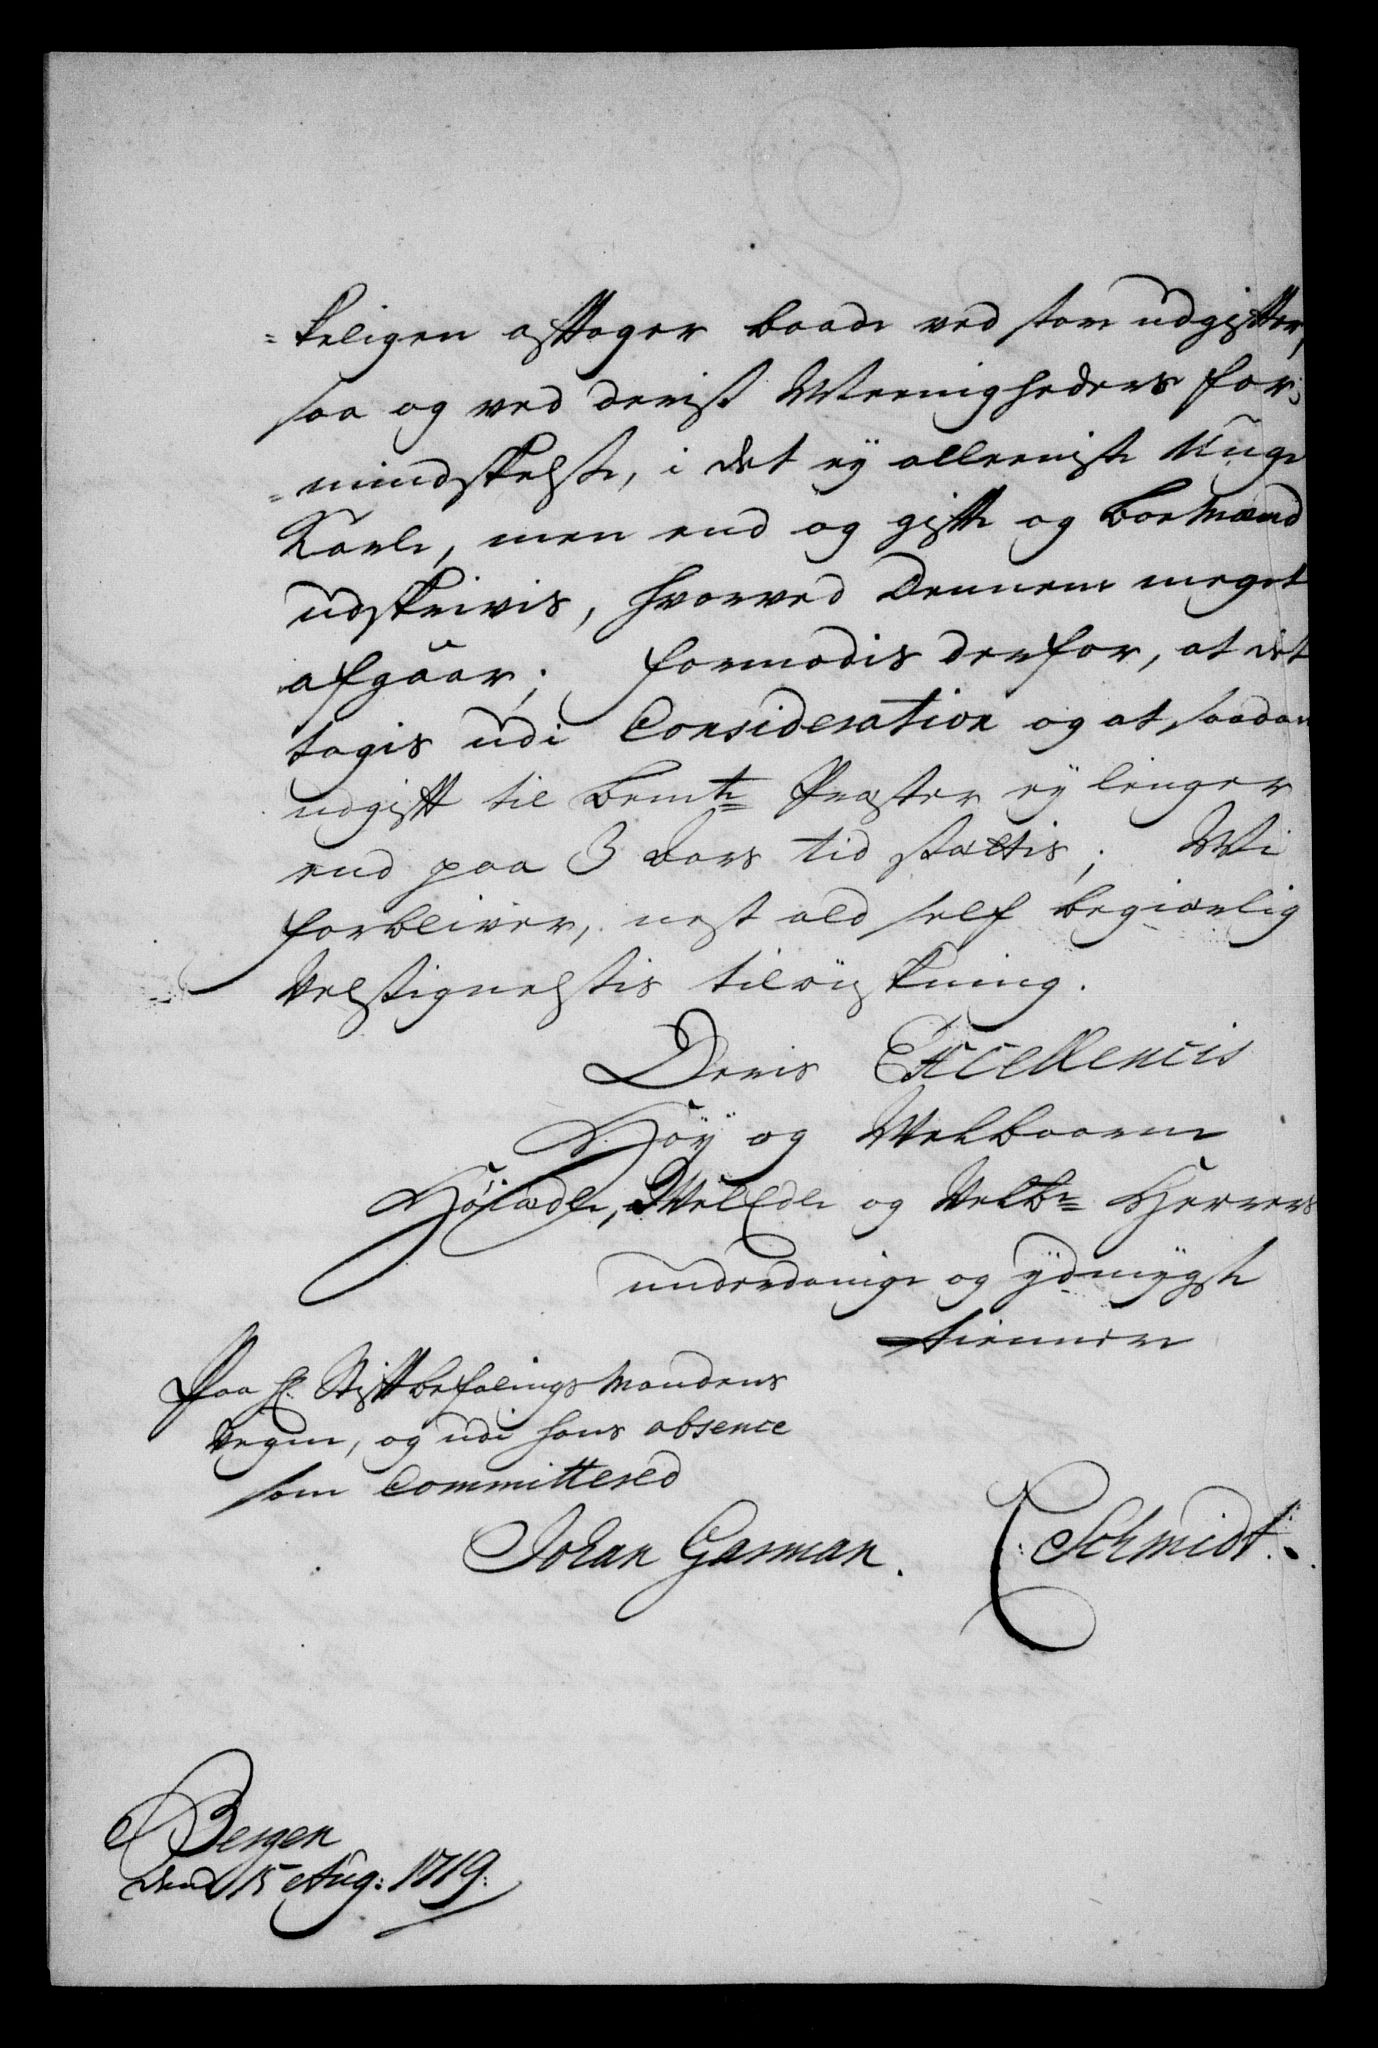 =keligen afftager baade ved store udgiffter,
saa og ved deris Meenigheders for:
=mindskelse, i det ey alleeniste Unge
Karle, men end og giffte og boe Mænd
udskrivis, hvorved Dennem meget
afgaar; formodis derfor, at det
tagis udi Consideration og at saadan
udgifft til bemte Præster ey lenger
end paa 3 Aars tid sættis; Wi
forbliver, nest ald self begiærlig
Velsignelsis tilønskning.
Deris Excellencis
Høy og Velbaarne
Høyædle, WelEdle og Velbne Herrers
underdanige og ydmygste
tiennere
Paa H. Stiftbefalings Mandens
Vegne, og udi hans absence
som Committered
Johan Garman. C Schmidt.
Bergen
dend 15 Aug: 1719.